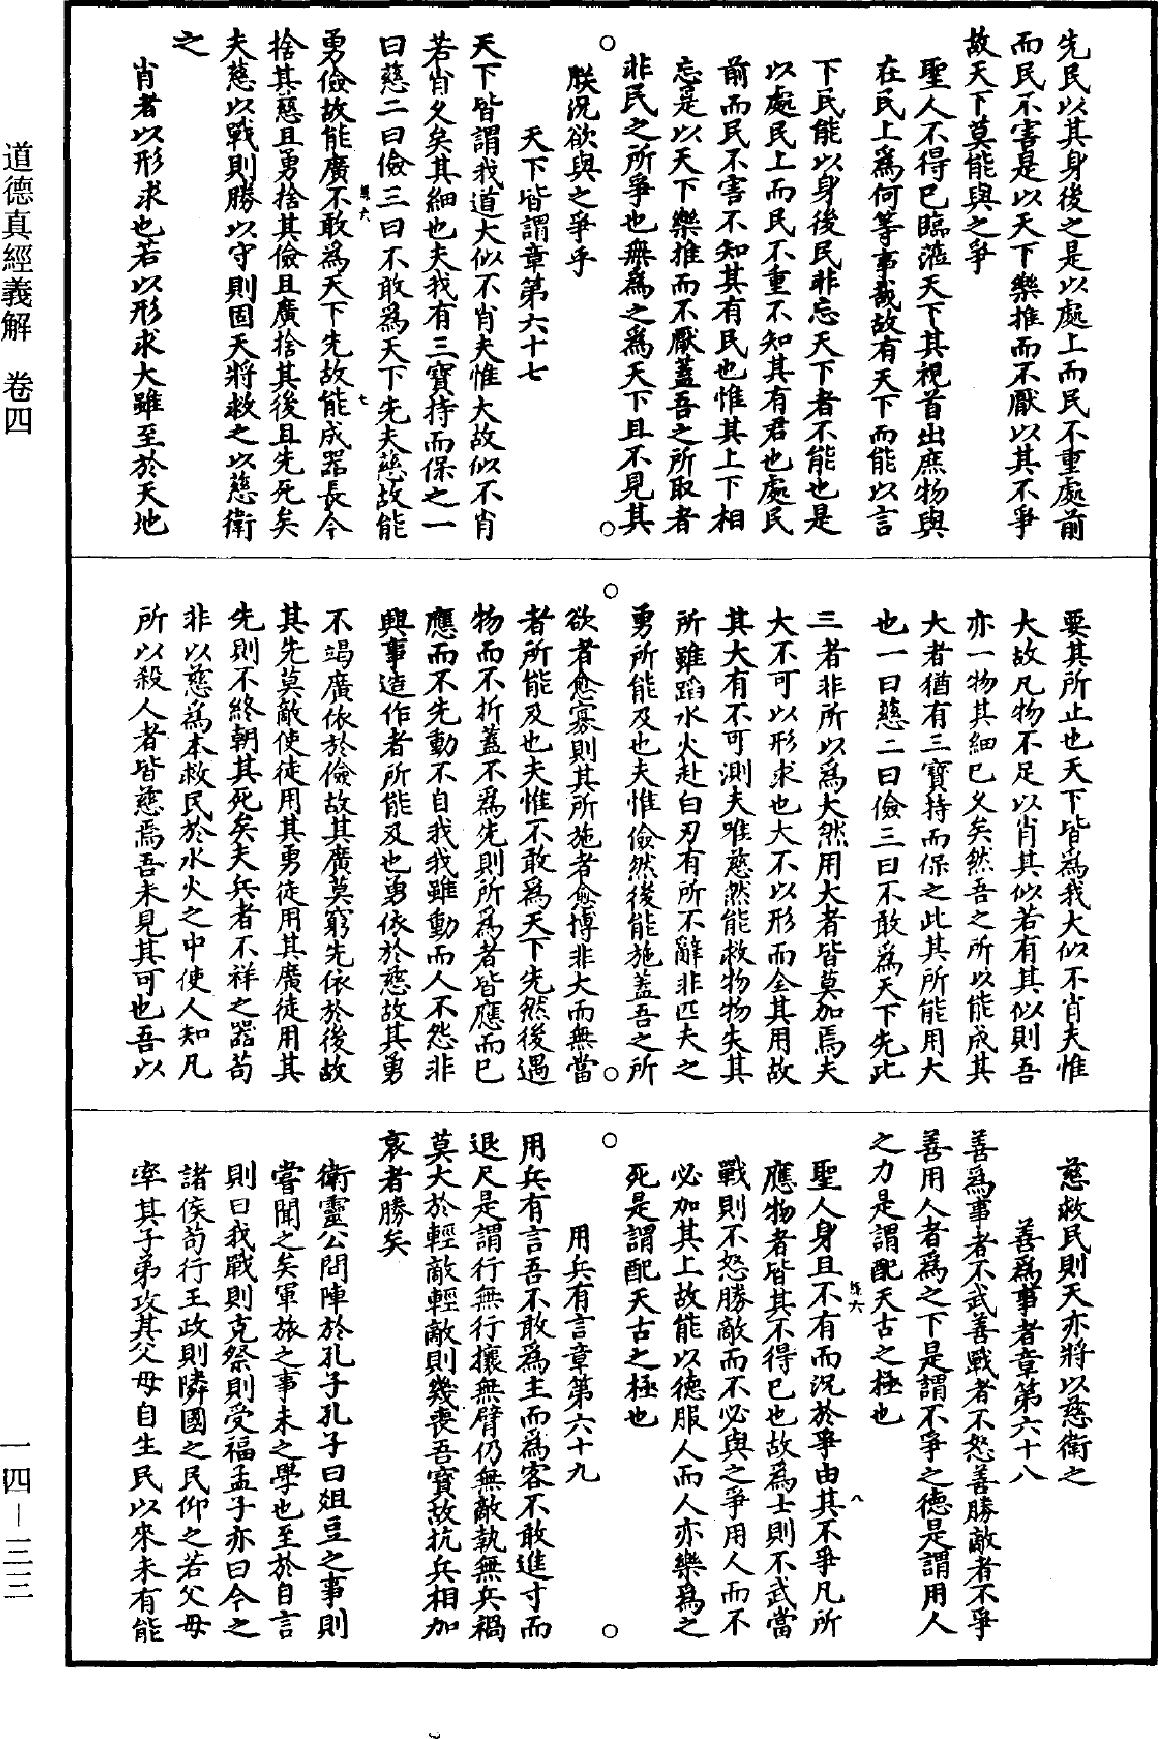 先民以其身後之是以處上而民不重處前
而民不害是以天下樂推而不厭以其不爭
故天下莫能與之爭
聖人不得已臨蒞天下其視首出庶物與
在民上為何等事哉故有天下而能以言
下民能以身後民非忘天下者不能也是
以處民上而民不重不知其有君也處民
前而民不害不知其有民也惟其上下相
忘是以天下樂推而不厭蓋吾之所取者
非民之所爭也無為之為天下且不見其
朕況欲與之爭乎
天下皆謂章第六十七
天下皆謂我道大似不肖夫惟大故似不肖
若肖久矣其細也夫我有三寶持而保之一
曰慈二曰儉三曰不敢為天下先夫慈故能
勇儉故能廣不敢為天下先故能成器長今
捨其慈且勇捨其儉且廣捨其後且先死矣
夫慈以戰則勝以守則固天將救之以慈衛
之
肖者以形求也若以形求大雖至於天地
要其所止也天下皆為我大似不肖夫惟
大故凡物不足以肖其似若有其似則吾
亦一物其細已久矣然吾之所以能成其
大者猶有三寶持而保之此其所能用大
也一曰慈二曰儉三曰不敢為天下先此
三者非所以為大然用大者皆莫加焉夫
大不可以形求也大不以形而全其用故
其大有不可測夫唯慈然能救物物失其
所雖蹈水火赴白刃有所不辭非匹夫之
勇所能及也夫惟儉然後能施蓋吾之所
欲者愈寡則其所施者愈博非大而無當
者所能及也夫惟不敢為天下先然後遇
物而不折蓋不為先則所為者皆應而已
應而不先動不自我我雖動而人不怨非
興事造作者所能及也勇依於慈故其勇
不竭廣依於儉故其廣莫窮先依於後故
其先莫敵使徒用其勇徒用其廣徒用其
先則不終朝其死矣夫兵者不祥之器苟
非以慈為本救民於水火之中使人知凡
所以殺人者皆慈焉吾未見其可也吾以
慈救民則天亦將以慈衛之
善為事者章第六十八
善為事者不武善戰者不怒善勝敵者不爭
善用人者為之下是謂不爭之德是謂用人
之力是謂配天古之極也
聖人身且不有而況於爭由其不爭凡所
應物者皆其不得已也故為士則不武當
戰則不怒勝敵而不必與之爭用人而不
必加其上故能以德服人而人亦樂為之
死是謂配天古之極也
用兵有言章第六十九
用兵有言吾不敢為主而為客不敢進寸而
退尺是謂行無行攘無臂仍無敵執無兵禍
莫大於輕敵輕敵則幾喪吾寶故抗兵相加
哀者勝矣
衛靈公問陣於孔子孔子曰俎豆之事則
嘗聞之矣軍旅之事未之學也至於自言
則曰我戰則克祭則受福孟子亦曰今之
諸侯苟行王政則隣國之民仰之若父母
率其子弟攻其父母自生民以來未有能
道德真經義解　卷四
一四—三三